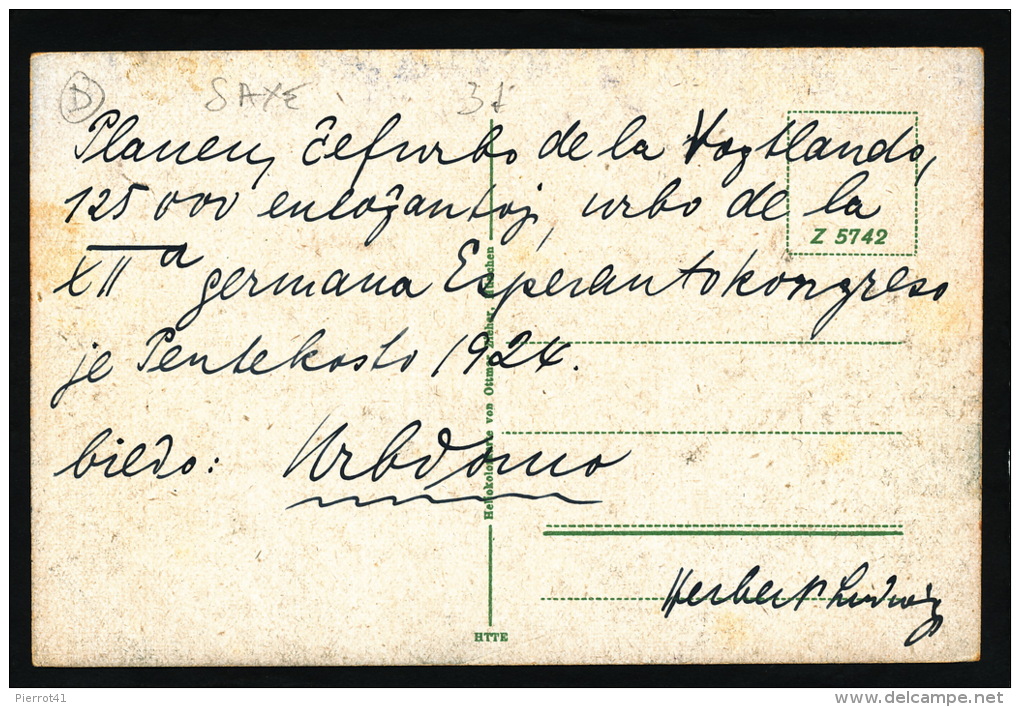 D SAXE
Plauen, ĉefurbo de la Vogtlando,
125 000 enloĝantoj, urbo de la
XIIa germana Esperantokongreso
je Pentekosto 1924.
bildo: Urbdomo
Herbert Ludwig
Z 5742
Heliokolorkarte von Ottmar Zieher, München
HTTE
Pierrot41
delcampe.net